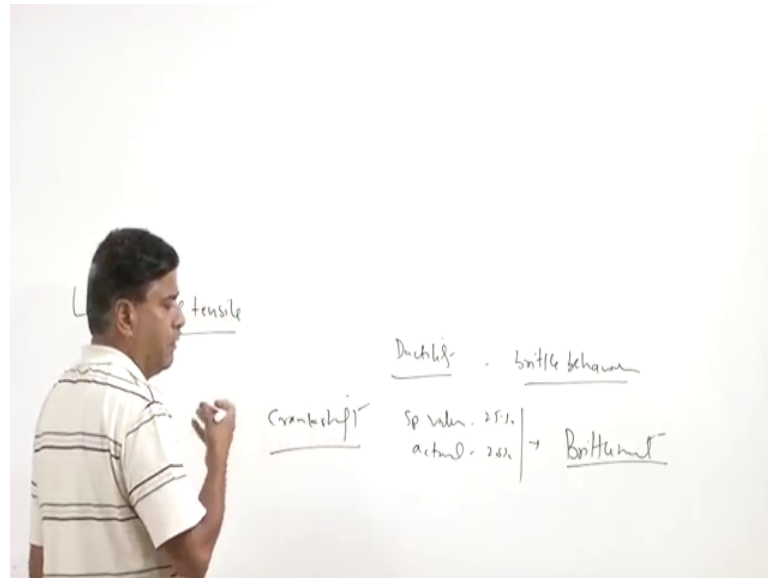 tensile
Ductility . brittle behaviour
Crankshaft sp value . 25%
actual - →